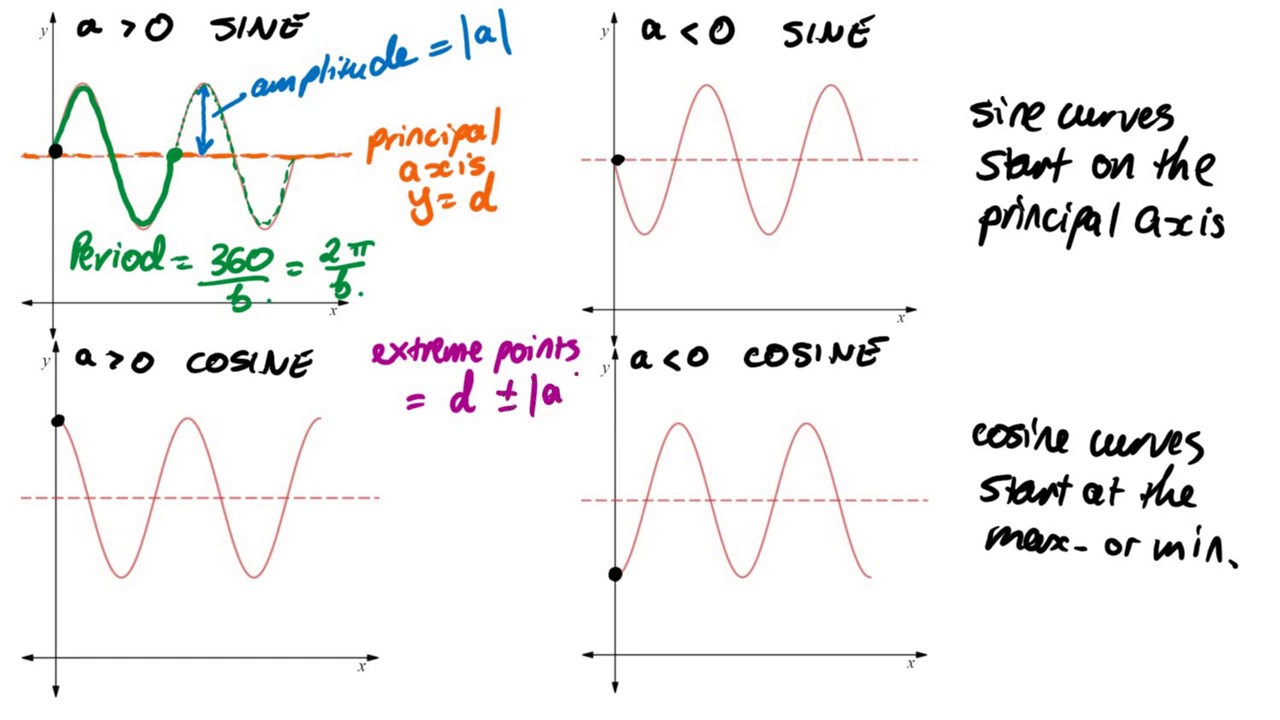 y
a > 0 SINE
amplitude = |a|
principal
axis
y = d
Period = 360/b = 2π/b.
x
y
a < 0 SINE
x
sine curves
start on the
principal axis
y
a > 0 COSINE
x
extreme points
= d ± |a
y
a < 0 COSINE
x
cosine curves
start at the
max- or min.